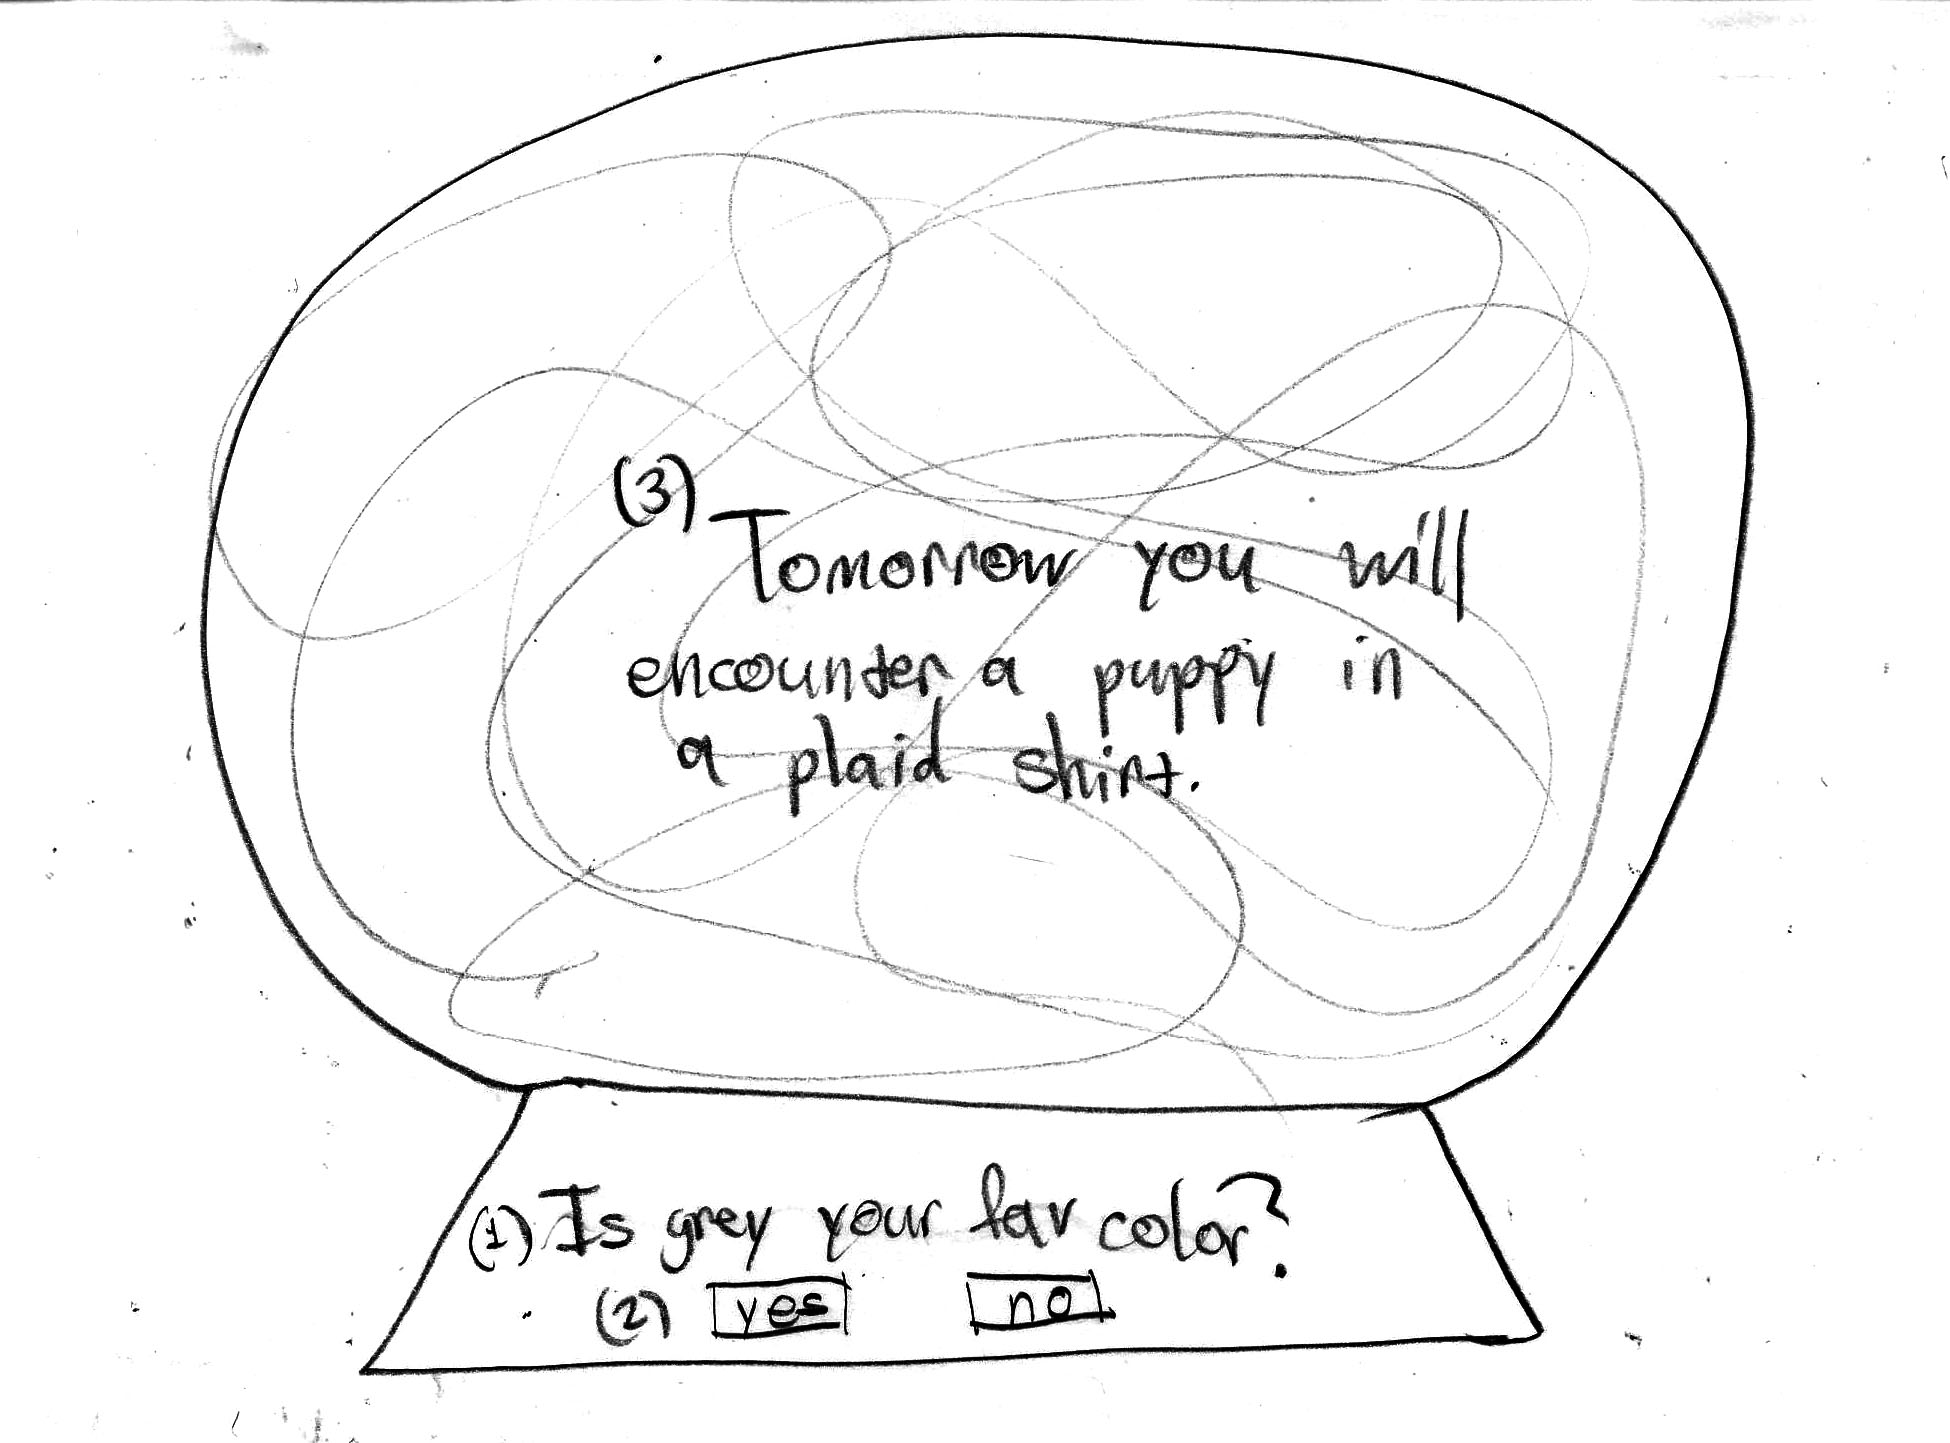 (3)
Tomorrow you will
encounter a puppy in
a plaid shirt.
(1) Is grey your fav color?
(2) yes no